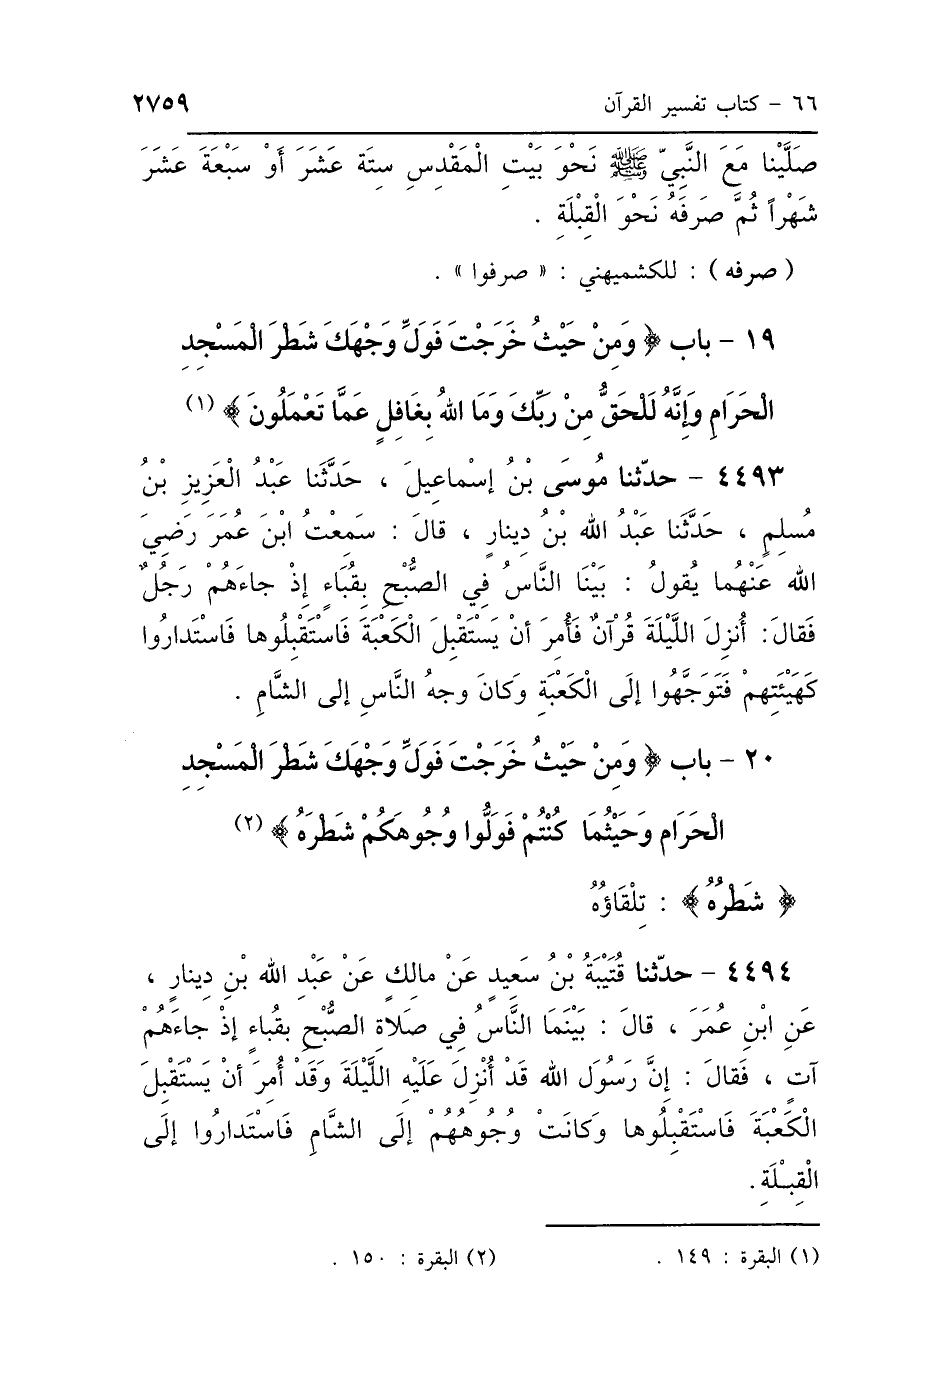 ٦٦ - كتاب تفسير القرآن ٢٧٥٩
صَلَّيْنا مَعَ النَّبِيّ ﷺ نَحْوَ بَيْتِ الْمَقْدِسِ سِتَّةَ عَشَرَ أَوْ سَبْعَةَ عَشَرَ
شَهْراً ثُمَّ صَرَفَهُ نَحْوَ الْقِبْلَةِ .
( صرفه ) : للكشميهني : « صرفوا » .
١٩ - باب ﴿ وَمِنْ حَيْثُ خَرَجْتَ فَوَلِّ وَجْهَكَ شَطْرَ الْمَسْجِدِ
الْحَرَامِ وَإِنَّهُ لَلْحَقُّ مِنْ رَبِّكَ وَمَا اللهُ بِغَافِلٍ عَمَّا تَعْمَلُونَ ﴾ (١)
٤٤٩٣ - حدّثنا مُوسَى بْنُ إسْماعِيلَ ، حَدَّثَنا عَبْدُ الْعَزِيزِ بْنُ
مُسلِمٍ ، حَدَّثَنا عَبْدُ الله بْنُ دِينارٍ ، قالَ : سَمِعْتُ ابْنَ عُمَرَ رَضِيَ
الله عَنْهُما يُقولُ : بَيْنَا النَّاسُ فِي الصُّبْحِ بِقُبَاءٍ إِذْ جاءَهُمْ رَجُلٌ
فَقالَ: أُنزِلَ اللَّيْلَةَ قُرْآنٌ فَأُمِرَ أنْ يَسْتَقْبِلَ الْكَعْبَةَ فَاسْتَقْبِلُوها فَاسْتَدارُوا
كَهَيْئَتِهِمْ فَتَوَجَّهُوا إلَى الْكَعْبَةِ وَكانَ وجهُ النَّاسِ إلى الشَّامِ .
٢٠ - باب ﴿ وَمِنْ حَيْثُ خَرَجْتَ فَوَلِّ وَجْهَكَ شَطْرَ الْمَسْجِدِ
الْحَرَامِ وَحَيْثُمَا كُنْتُمْ فَوَلُّوا وُجُوهَكُمْ شَطْرَهُ ﴾ (٢)
﴿ شَطْرُهُ ﴾ : تِلْقَاؤُهُ
٤٤٩٤ - حدّثنا قُتَيْبَةُ بْنُ سَعِيدٍ عَنْ مالِكٍ عَنْ عَبْدِ الله بْنِ دِينارٍ ،
عَنِ ابْنِ عُمَرَ ، قالَ : بَيْنَمَا النَّاسُ فِي صَلَاةِ الصُّبْحِ بِقُباءٍ إذْ جاءَهُمْ
آتٍ ، فَقالَ : إنَّ رَسُولَ الله قَدْ أُنْزِلَ عَلَيْهِ اللَّيْلَةَ وَقَدْ أُمِرَ أنْ يَسْتَقْبِلَ
الْكَعْبَةَ فَاسْتَقْبِلُوها وَكانَتْ وُجُوهُهُمْ إلَى الشَّامِ فَاسْتَدارُوا إلَى
الْقِبْلَةِ .
(١) البقرة : ١٤٩ . (٢) البقرة : ١٥٠ .